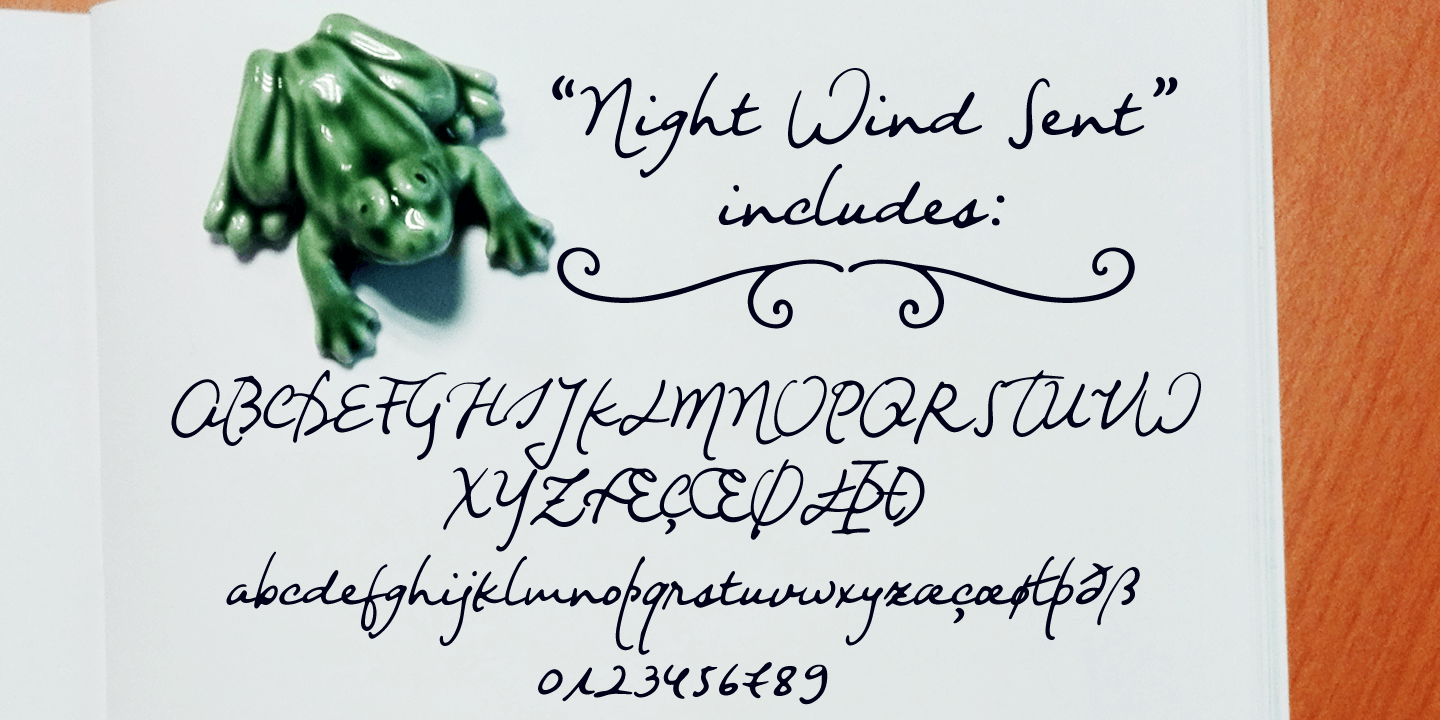 “Night Wind Sent”
includes:
ABCDEFGHIJKLMNOPQRSTUVW
XYZÆÇŒØŁÞÐ
abcdefghijklmnopqrstuvwxyzæçœøłþðß
0123456789